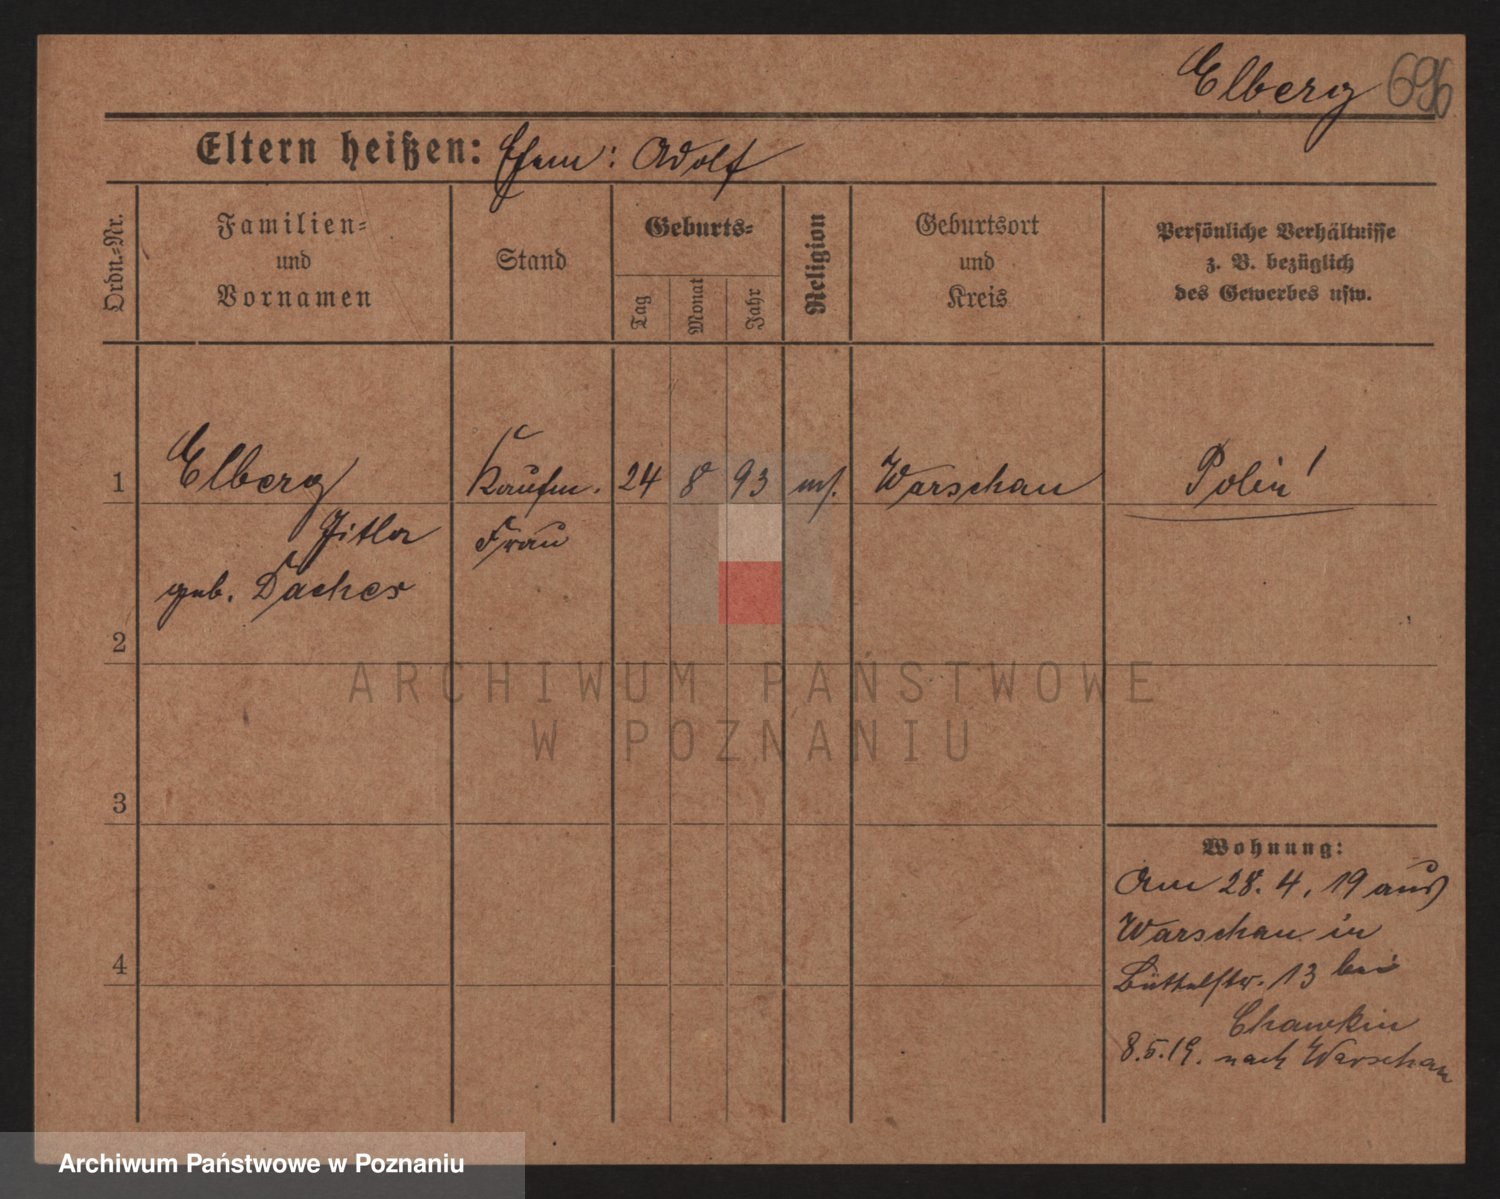 Elberg 696
Eltern heißen: Ehem: Adolf
Ordn.-Nr.
Familien-
und
Vornamen
Stand
Geburts-
Tag
Monat
Jahr
Religion
Geburtsort
und
Kreis
Persönliche Verhältnisse
z. B. bezüglich
des Gewerbes usw.
1 Elberg Kaufm. 24 8 93 mos. Warschau Polin!
Jitla Frau
geb. Dacher
2
3
4
Wohnung:
Am 28. 4. 19 aus
Warschau in
Büttelstr. 13 bei
Chawkin
8.5.19. nach Warschau
ARCHIWUM PAŃSTWOWE
W POZNANIU
Archiwum Państwowe w Poznaniu